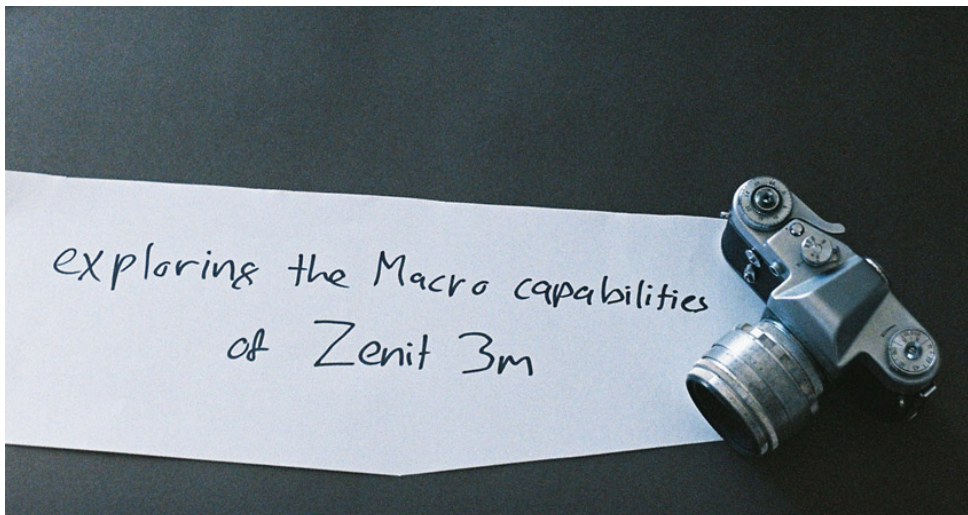 exploring the Macro capabilities
of Zenit 3m